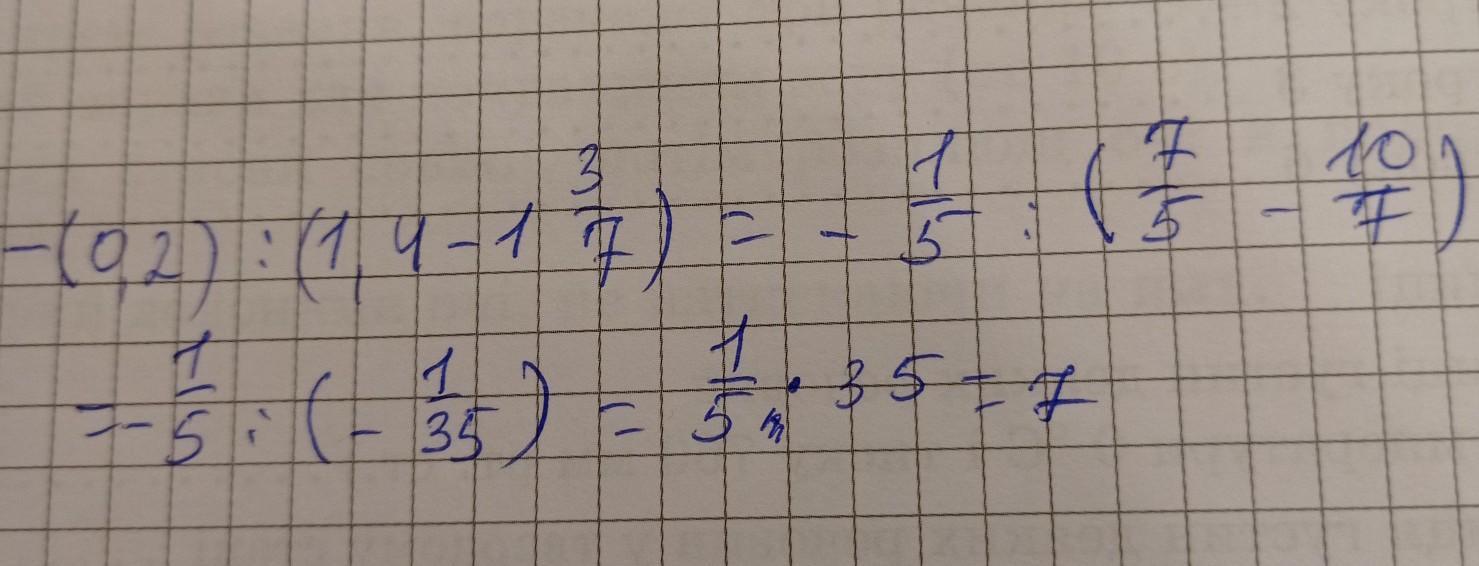 -(0,2) : (1,4 - 1 3/7) = - 1/5 : (7/5 - 10/7)
= - 1/5 : (- 1/35) = 1/5 · 35 = 7